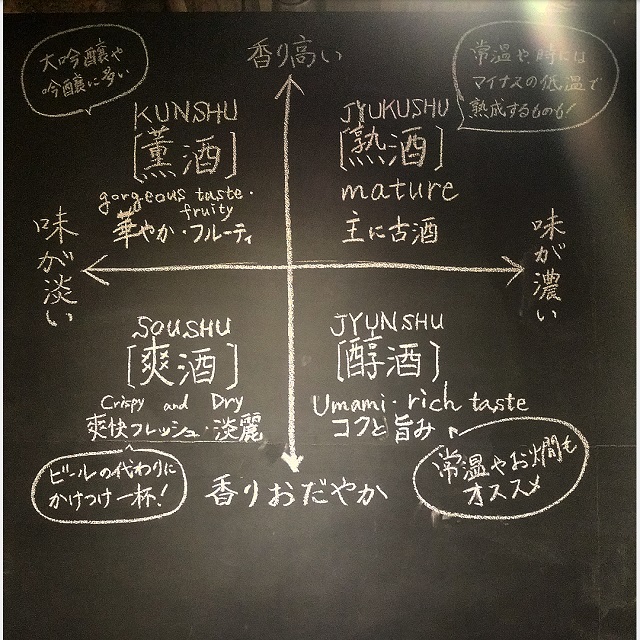 香り高い
大吟醸や
吟醸に多い
常温や、時には
マイナスの低温で
熟成するものも!
KUNSHU
[薫酒]
gorgeous taste・
fruity
華やか・フルーティ
JYUKUSHU
[熟酒]
mature
主に古酒
味が淡い
味が濃い
SOUSHU
[爽酒]
Crispy and Dry
爽快フレッシュ・淡麗
JYUNSHU
[醇酒]
Umami・rich taste
コクと旨み
ビールの代わりに
かけつけ一杯!
香りおだやか
常温やお燗も
オススメ